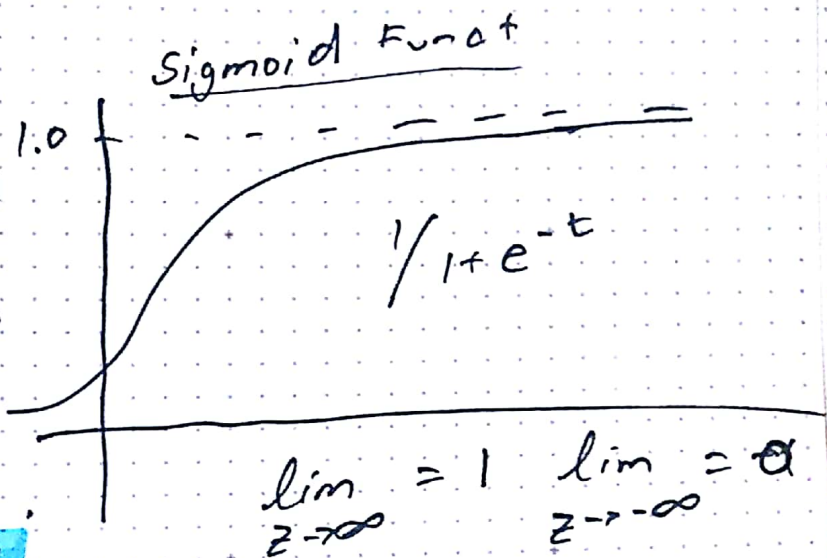 Sigmoid Funct
1.0
1/1+e^-t
lim = 1 lim = 0
z→∞ z→-∞